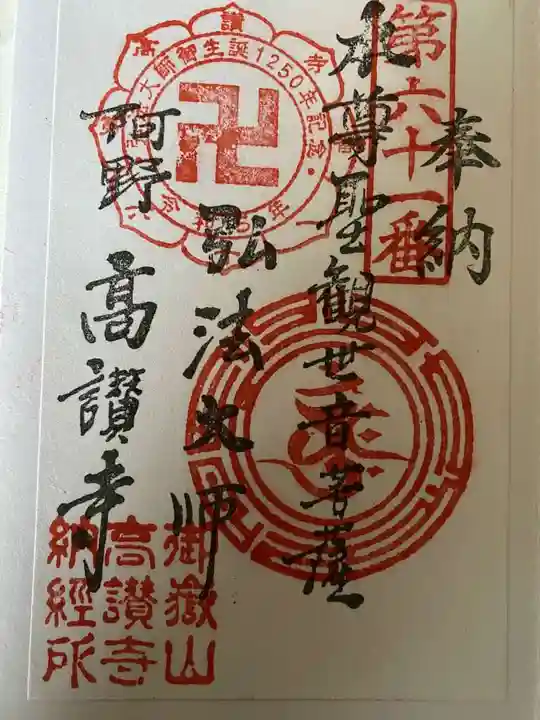 奉納
第六十一番
本尊聖観世音菩薩
弘法大師
阿野 高讃寺
高讃寺
大師御生誕1250年記念
御嶽山
高讃寺
納経所